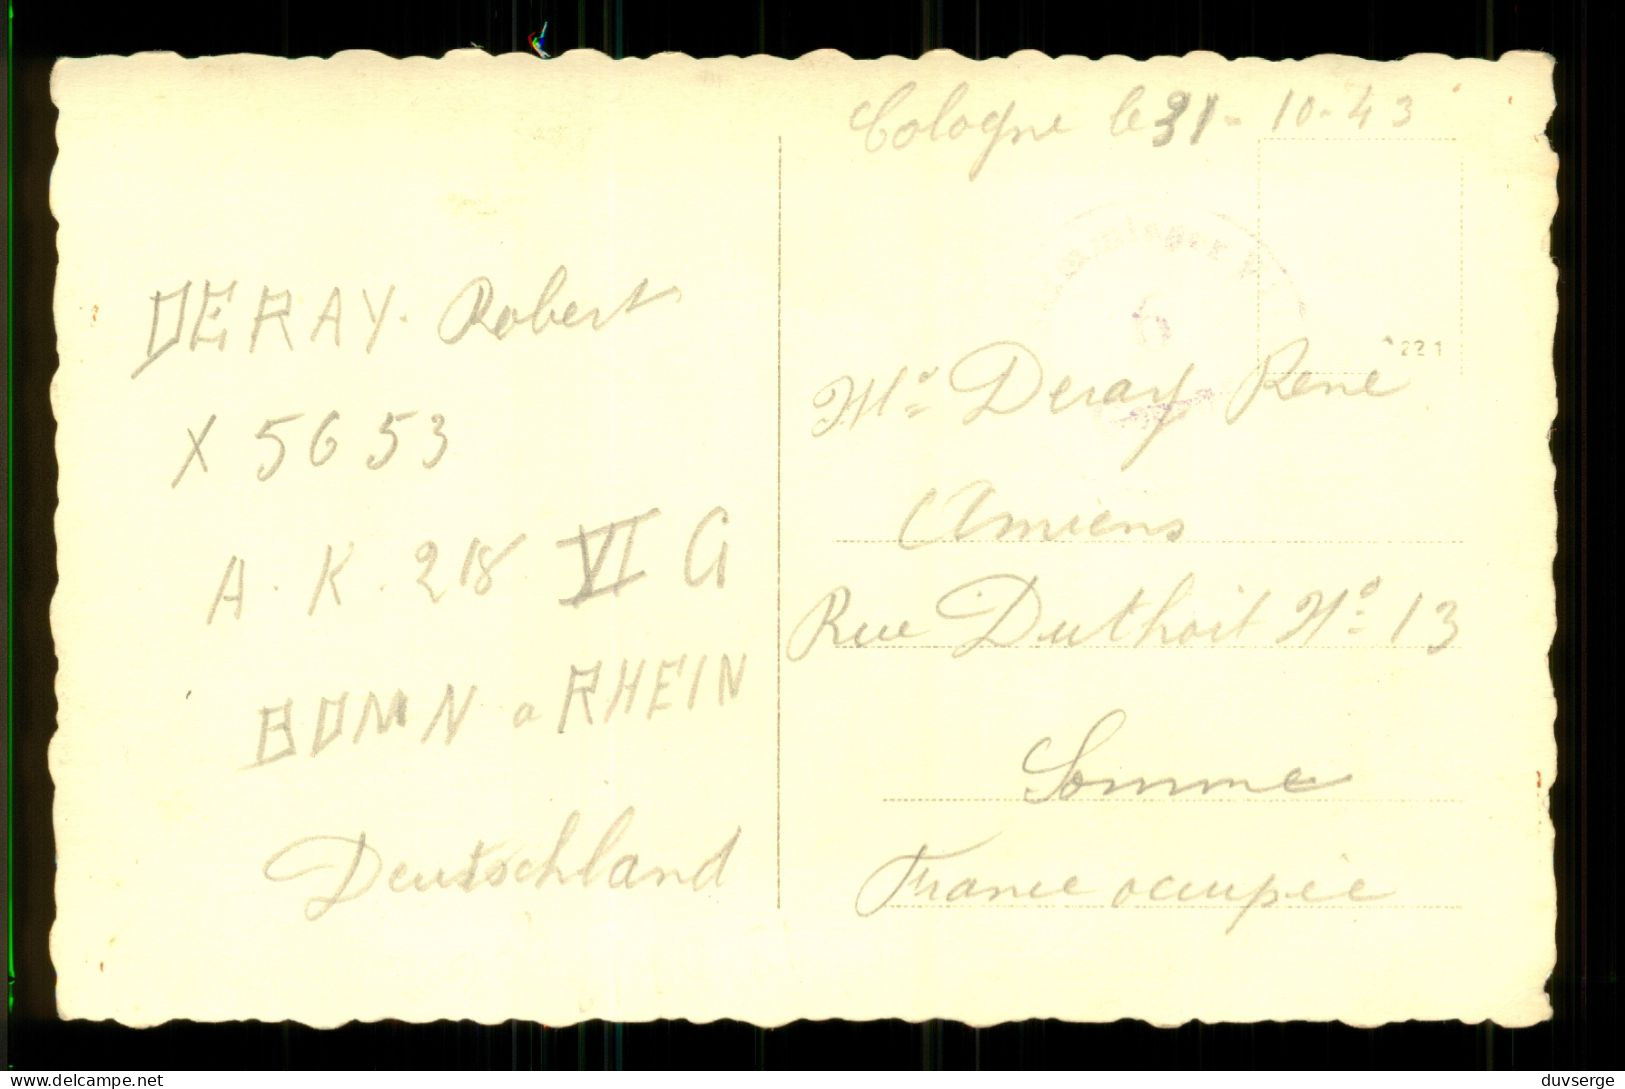 Cologne le 31-10-43
DERAY. Robert
X 5653
A. K. 218 VI G
BONN a RHEIN
Deutschland
6
221
Mr Deray René
Amiens
Rue Duthoit No 13
Somme
France occupée
duvserge